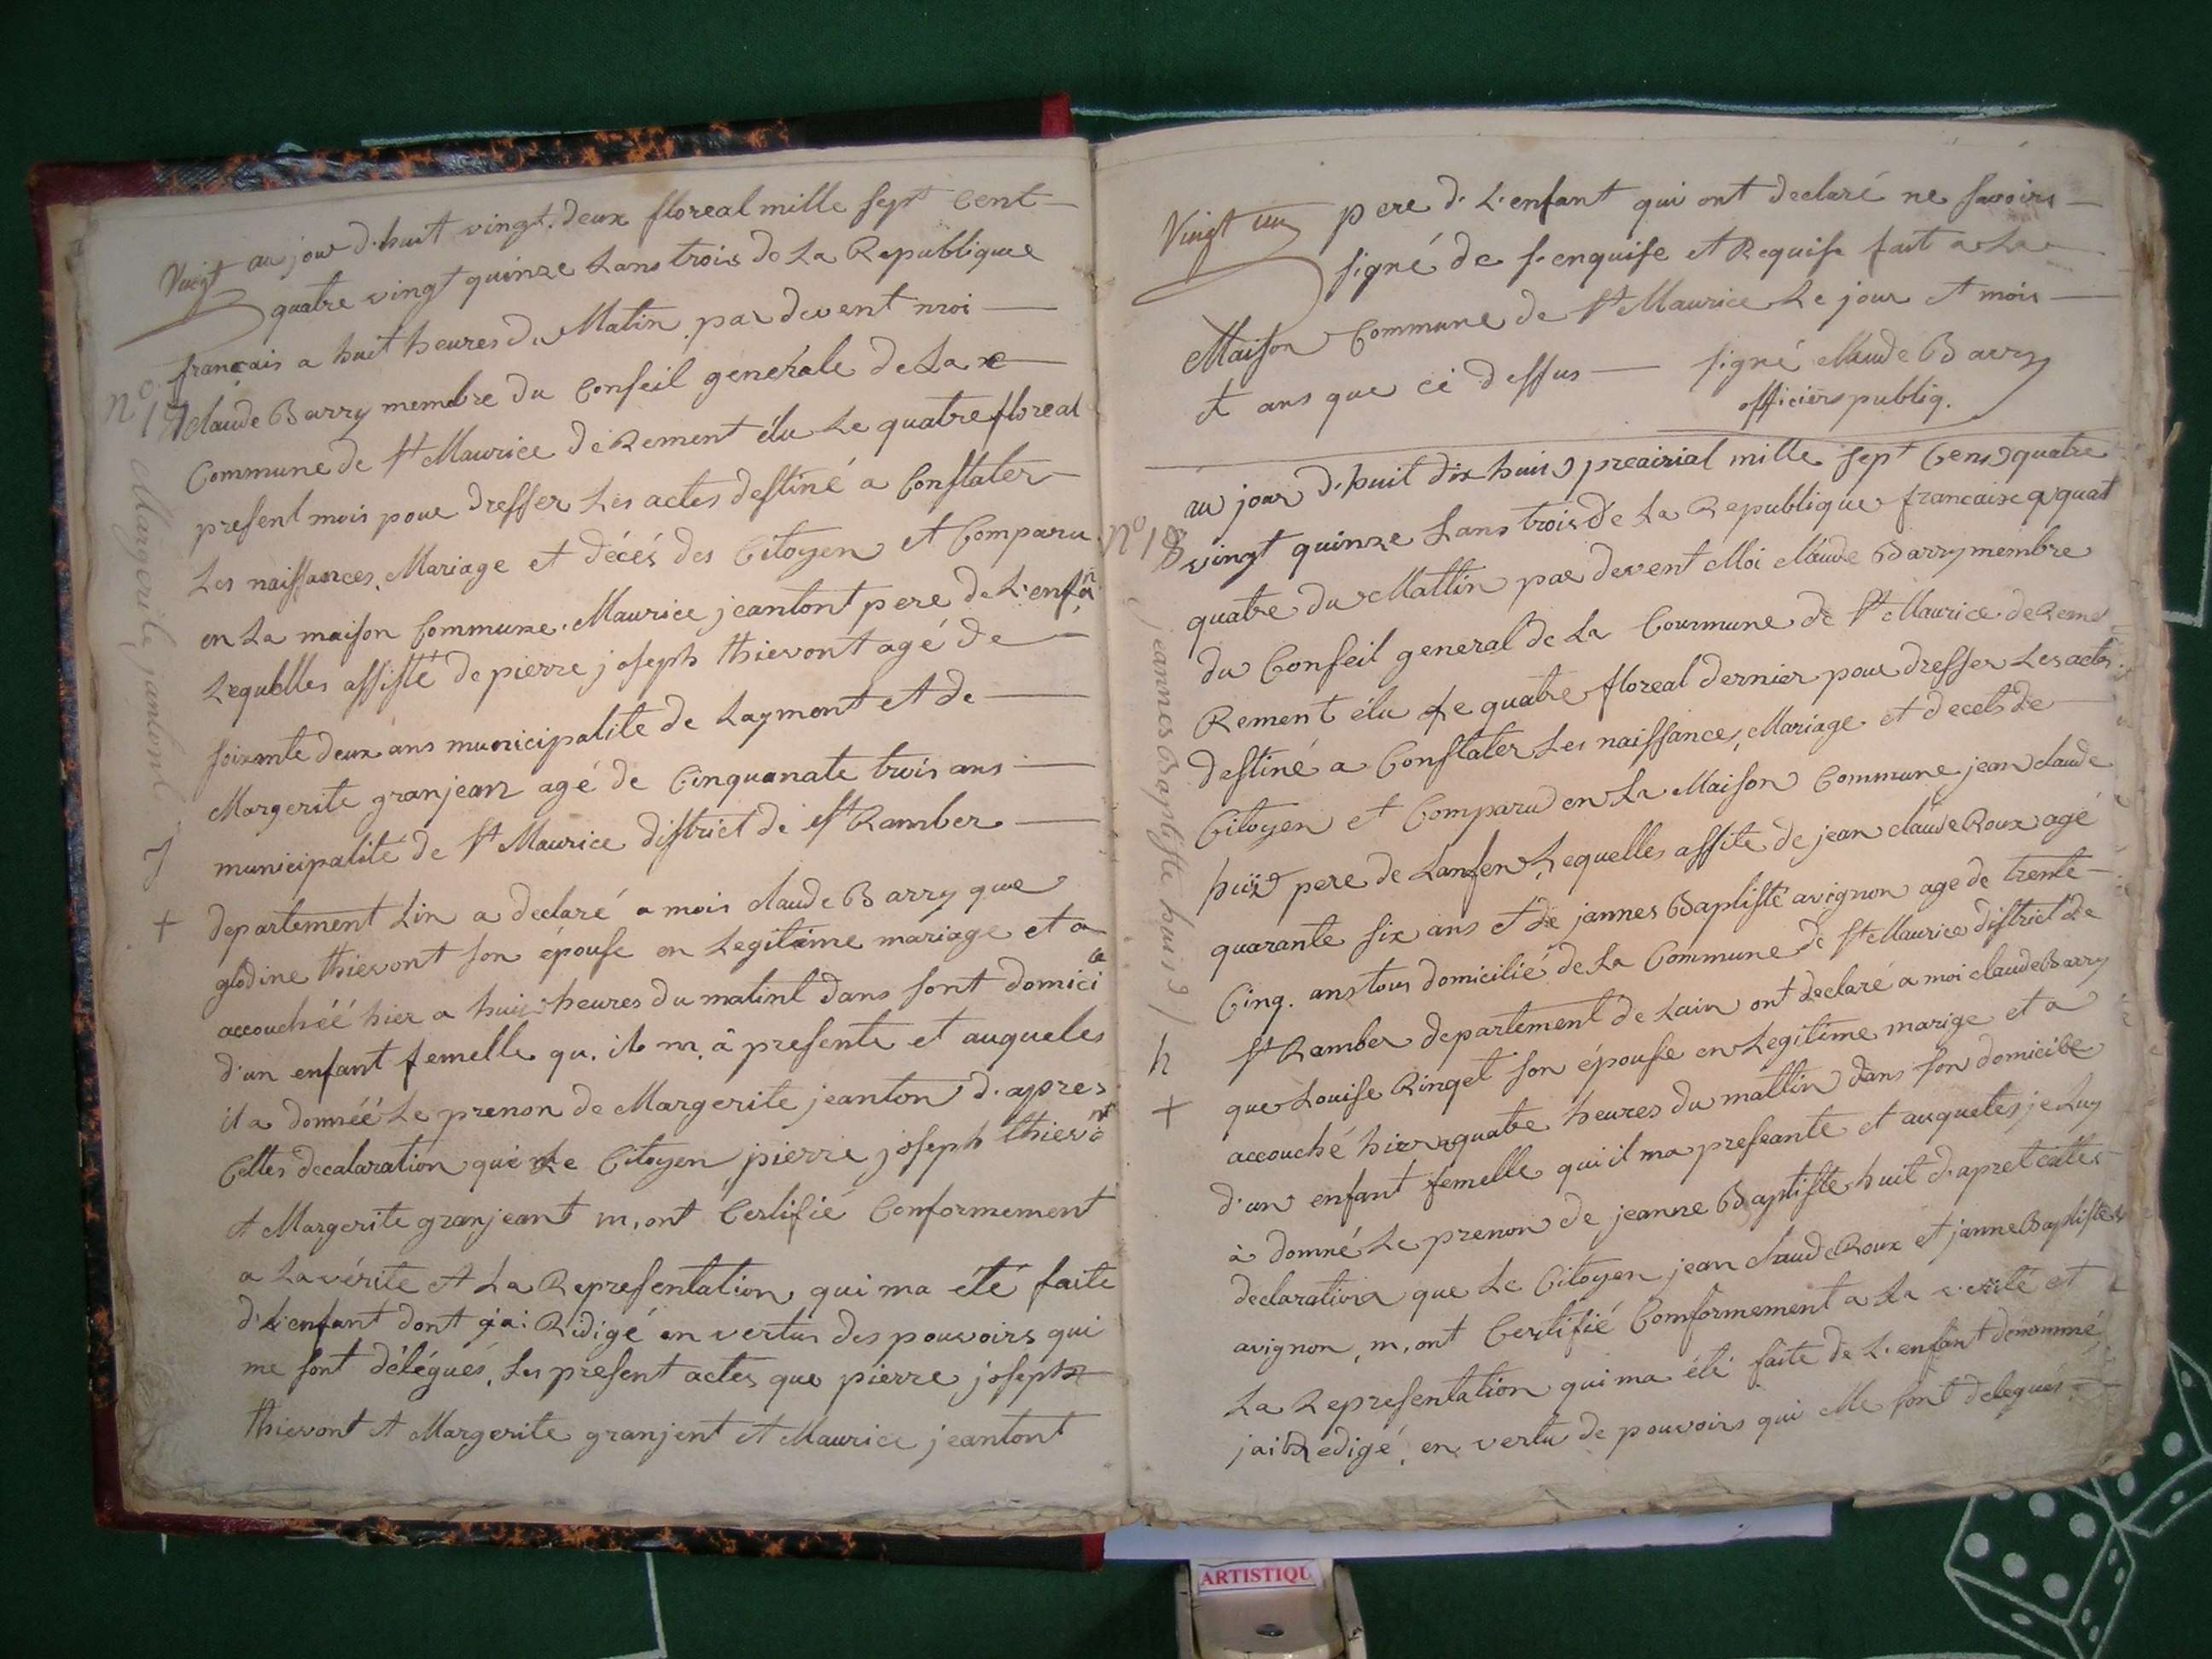 Vingt
au jour d'huit vingt. deux floreal mille sept Cent
quatre vingt quinze Lans trois de La Republique
français a huit heures du Matin par devent moi
n° 17
Claude Barry membre du Conseil generale de La
Commune de St Maurice de Rement élu Le quatre floreal
present mois pour dresser Les actes destiné a Constater
Les naissances, Mariage et décés des Citoyen et Comparu
en La maison Commune. Maurice jeantont pere de L'enfan
Lequelles assisté de pierre joseph thievont agé de
soixante deux ans municipalite de Laymont et de
Margerite granjean agé de Cinquanate trois ans
municipalité de St Maurice district de St Ramber
departement Lin a declaré a mois claude Barry que
glodine thievont son épouse en Legitime mariage et a
accouchéé hier a huit heures du matint dans sont domici
le
d'un enfant femelle qu. il m, à presente et auqueles
il a donnéé Le prenon de Margerite jeanton d'apres
Celles decalaration que Le Citoyen pierre joseph thievont
et Margerite granjeant m, ont Certifié Conformement
a La vérite et La Representation qui ma été faite
d'L'enfant dont j'ai Ridigé en vertus des pouvoirs qui
me sont délégués, Les present actes que pierre joseph
thievont et Margerite granjent et Maurice jeantont
Margerite jantont
J
+
Vingt un
pere d. L'enfant qui ont declaré ne savoirs
signé de s'enquise et Requise fait a La
Maison Commune de St Maurice Le jour et mois
et ans que ci dessus signé Claude Barry
officiers publiq.
au jour d'huit dix huit preairial mille sept Cens quatre
n° 18
vingt quinze Lans trois de La Republique francaise a quat
quatre du Mattin par devent Moi Claude Barry membre
du Conseil general de La Courmune de St Maurice de Reme
Rement élu Le quatre floreal dernier pour dresser Les actes
destiné a Constater Les naissance, Mariage et decets de
Citoyen et Comparu en La Maison Commune jean claude
huit pere de Lanfen Lequelles assite de jean claude Roux agé
quarante six ans et de jannes Baptiste avignon age de trente
Cinq. ans tous domicilié de La Commune de St Maurice district de
St Ramber departement de Lain ont declaré a moi claude Barry
que Louise Ringet son épouse en Legitime marige et a
accouché hier a quatre heures du mattin dans son domicile
d'un enfant femelle qui il ma preseante et auqueles je Luy
à domné Le prenon de jeanne Baptiste huit d'apret cettes
declaration que Le Citoyen jean claude Roux et janne Baptiste
avignon, m, ont Certifié Comformement a La verité et
La Representation qui ma été faite de L'enfant denommé,
jait Redigé, en vertu de pouvoirs qui Me sont delegués
jeannes Baptiste huit
h
+
ARTISTIQU